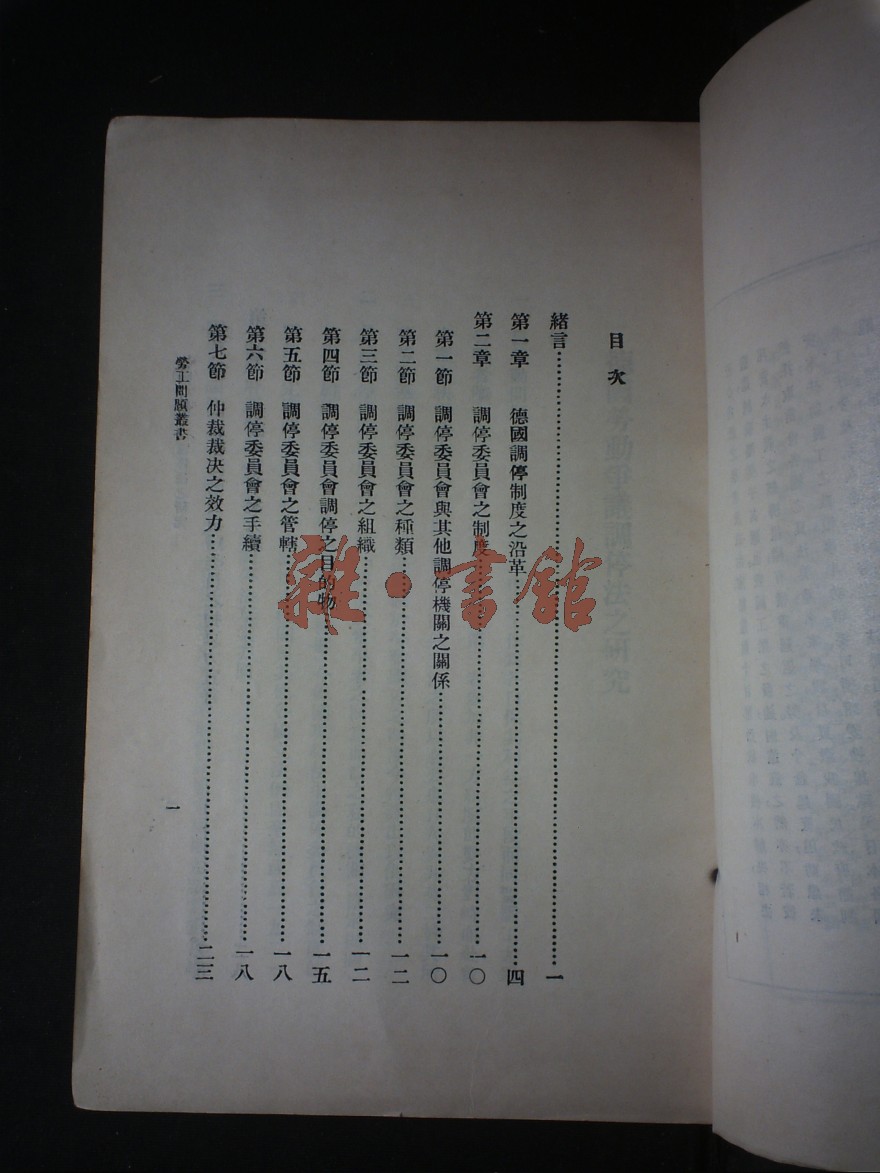 目次
緒言……一
第一章 德國調停制度之沿革……四
第二章 調停委員會之制度……一〇
第一節 調停委員會與其他調停機關之關係……一〇
第二節 調停委員會之種類……一二
第三節 調停委員會之組織……一二
第四節 調停委員會調停之目的物……一五
第五節 調停委員會之管轄……一八
第六節 調停委員會之手續……一八
第七節 仲裁裁決之效力……二三
勞工問題叢書
一
雜·書館